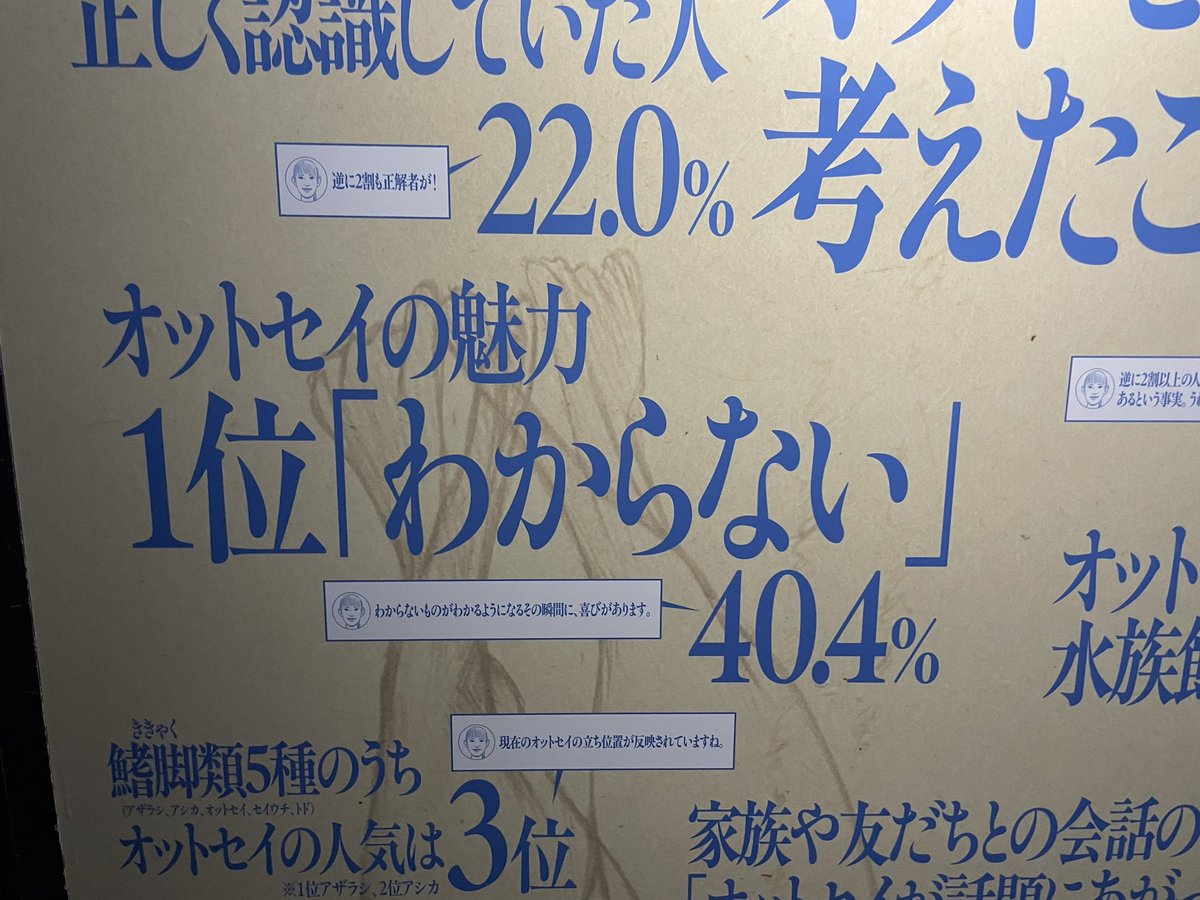 正しく認識していた人
22.0%
逆に2割も正解者が!
考えたこ
オットセイの魅力
1位「わからない」
40.4%
わからないものがわかるようになるその瞬間に、喜びがあります。
逆に2割以上の人
あるという事実。う
オット
水族館
ききゃく
鰭脚類5種のうち
(アザラシ、アシカ、オットセイ、セイウチ、トド)
オットセイの人気は
3位
※1位アザラシ、2位アシカ
現在のオットセイの立ち位置が反映されていますね。
家族や友だちとの会話の
「オットセイが話題にあがっ